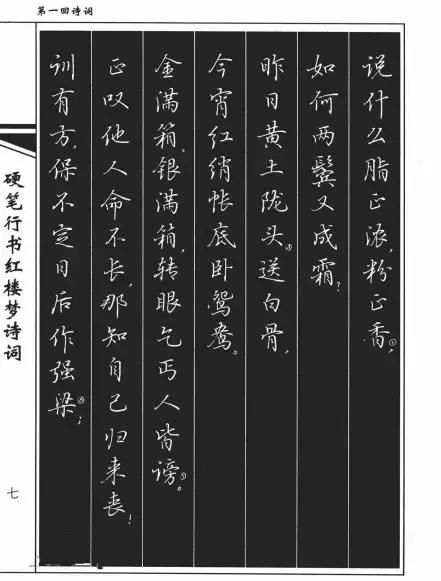 第一回诗词
说什么脂正浓,粉正香①,
如何两鬓又成霜?
昨日黄土陇头②送白骨,
今宵红绡帐底卧鸳鸯。
金满箱,银满箱,转眼乞丐人皆谤③。
正叹他人命不长,那知自己归来丧!
训有方,保不定日后作强梁④;
硬笔行书红楼梦诗词
七